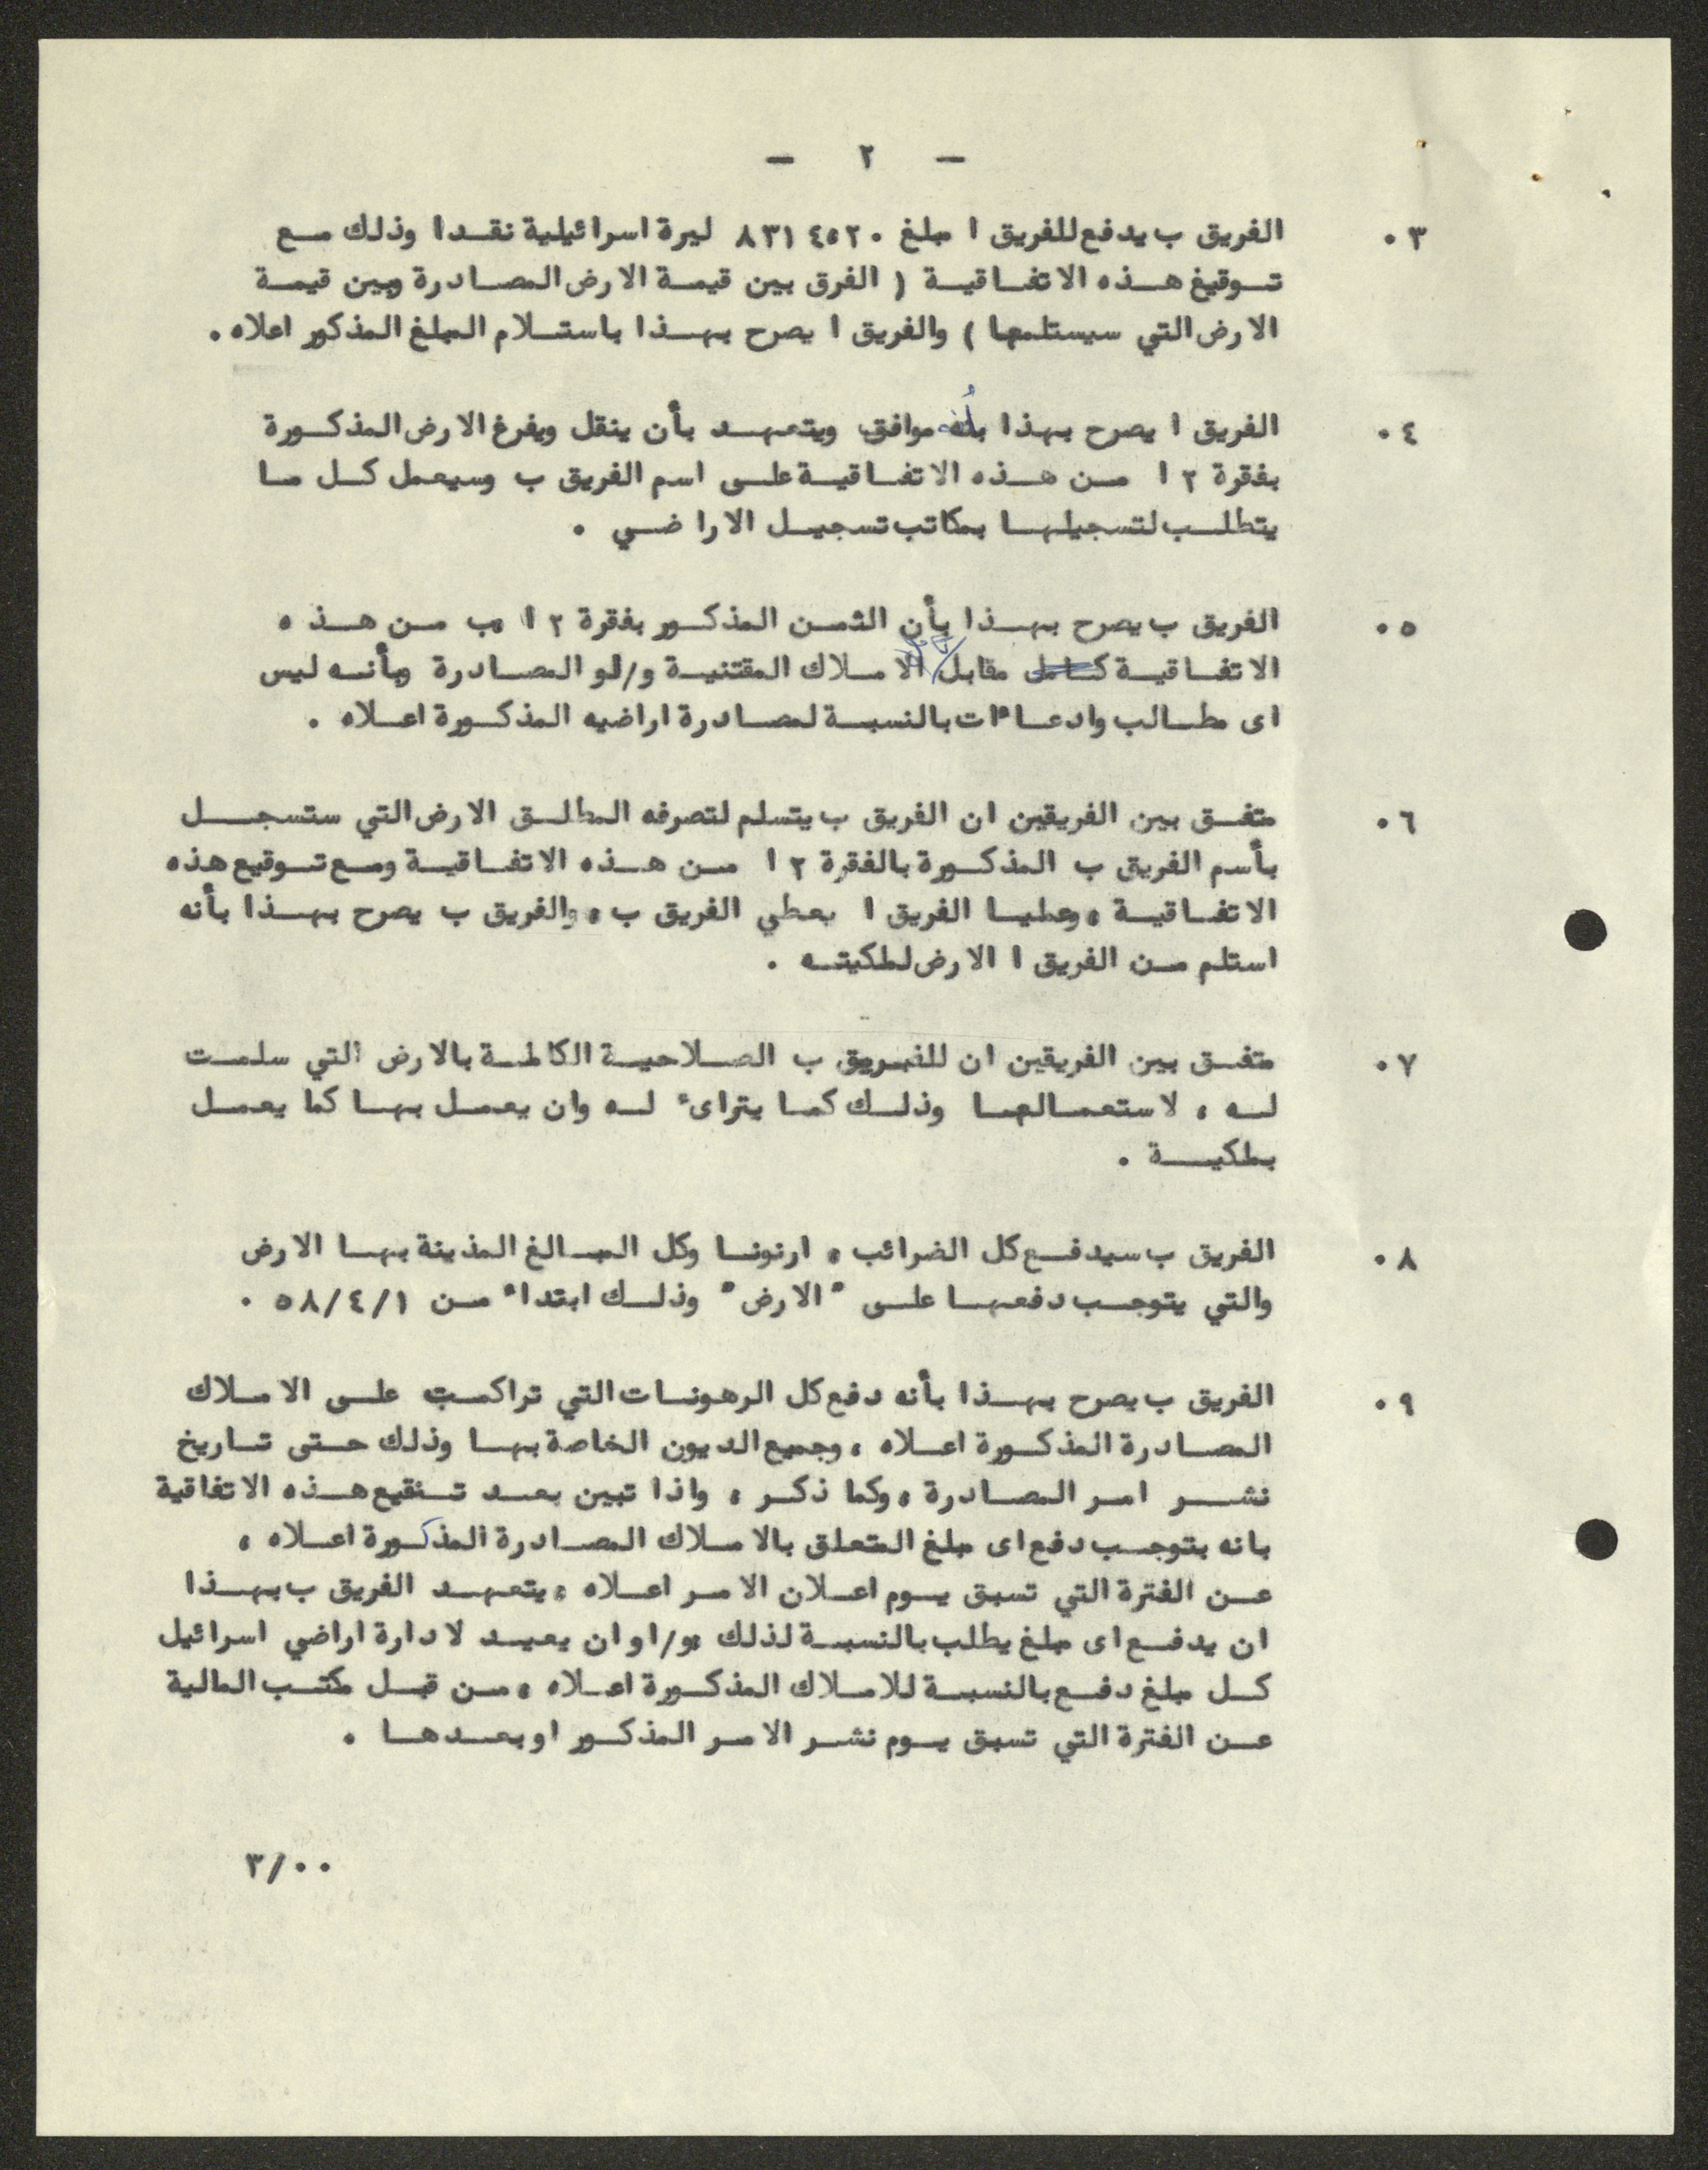 — ٢ —
٠٣ الفريق ب يدفع للفريق ا مبلغ ٨٣١٤٥٢٠ ليرة اسرائيلية نقدا وذلك مع
توقيغ هذه الاتفاقية ( الفرق بين قيمة الارض المصادرة وبين قيمة
الارض التي سيستلمها ) والفريق ا يصرح بهذا باستلام المبلغ المذكور اعلاه .
٠٤ الفريق ا يصرح بهذا بأنه موافق ويتعهد بأن ينقل ويفرغ الارض المذكورة
بفقرة ٢ ا من هذه الاتفاقية على اسم الفريق ب وسيعمل كل ما
يتطلب لتسجيلها بمكاتب تسجيل الاراضي .
٠٥ الفريق ب يصرح بهذا بأن الثمن المذكور بفقرة ٢ ا ب من هذه
الاتفاقية كامل مقابل الاملاك المقتنية و/او المصادرة وبأنه ليس
اى مطالب وادعاءات بالنسبة لمصادرة اراضيه المذكورة اعلاه .
٠٦ متفق بين الفريقين ان الفريق ب يتسلم لتصرفه المطلق الارض التي ستسجل
بأسم الفريق ب المذكورة بالفقرة ٢ ا من هذه الاتفاقية ومع توقيع هذه
الاتفاقية ، وعمليا الفريق ا يعطي الفريق ب ، والفريق ب يصرح بهذا بأنه
استلم من الفريق ا الارض لملكيته .
٠٧ متفق بين الفريقين ان للفريق ب الصلاحية الكاملة بالارض التي سلمت
له ، لاستعمالها وذلك كما يتراىء له وان يعمل بها كما يعمل
بملكية .
٠٨ الفريق ب سيدفع كل الضرائب ، ارنونا وكل المبالغ المدينة بها الارض
والتي يتوجب دفعها على "الارض" وذلك ابتداء من ٥٨/٤/١ .
٠٩ الفريق ب يصرح بهذا بأنه دفع كل الرهونات التي تراكمت على الاملاك
المصادرة المذكورة اعلاه ، وجميع الديون الخاصة بها وذلك حتى تاريخ
نشر امر المصادرة ، وكما ذكر ، واذا تبين بعد تنقيع هذه الاتفاقية
بانه يتوجب دفع اى مبلغ المتعلق بالاملاك المصادرة المذكورة اعلاه ،
عن الفترة التي تسبق يوم اعلان الامر اعلاه ، يتعهد الفريق ب بهذا
ان يدفع اى مبلغ يطلب بالنسبة لذلك و/او ان يعيد لادارة اراضي اسرائيل
كل مبلغ دفع بالنسبة للاملاك المذكورة اعلاه ، من قبل مكتب المالية
عن الفترة التي تسبق يوم نشر الامر المذكور او بعدها .
٣/٠٠